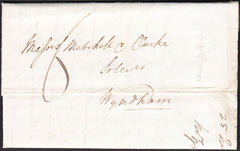 Messrs Mitchell & Clarke
6
Solrs
Wyndham